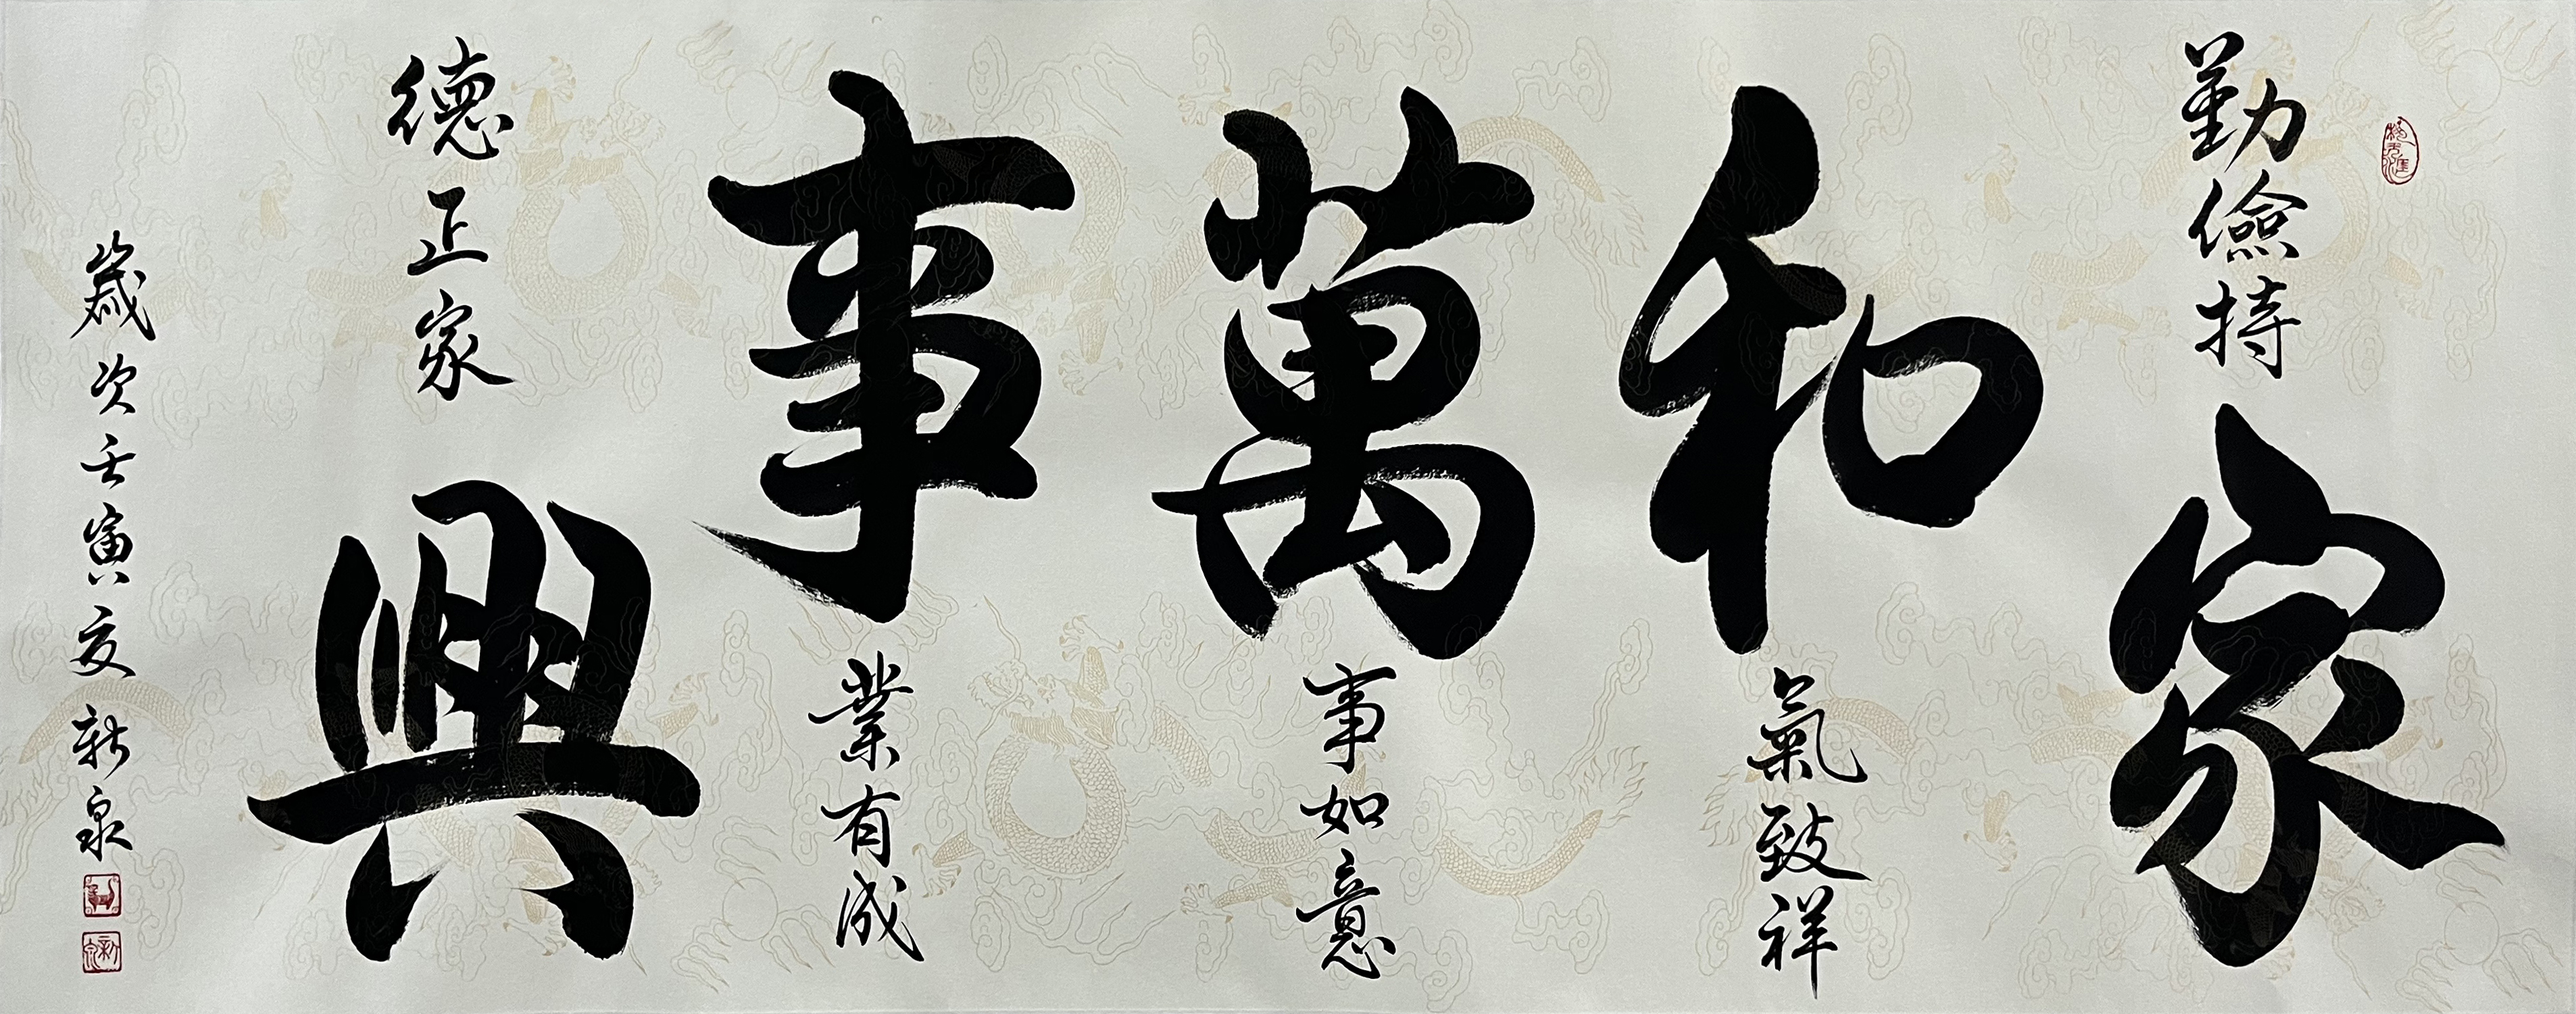 勤儉持家
和氣致祥
萬事如意
事業有成
德正家興
歲次壬寅夏新泉